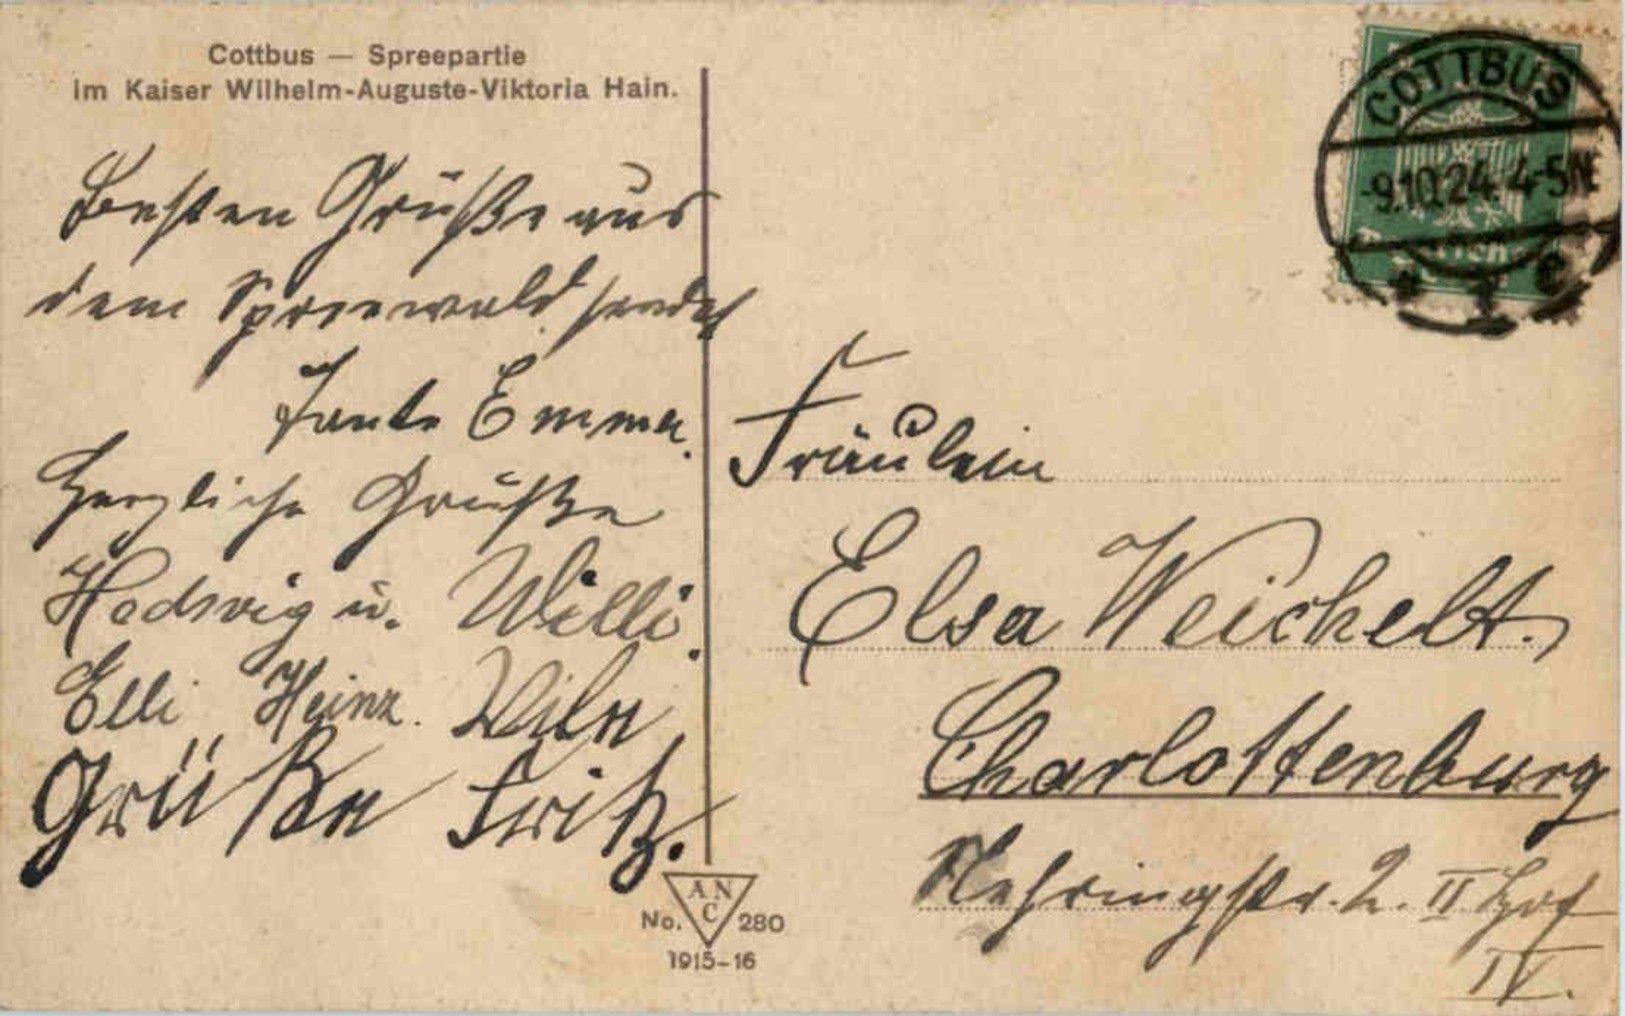 Cottbus — Spreepartie
im Kaiser Wilhelm-Auguste-Viktoria Hain.
Besten Grüße aus
dem Spreewald sendet
Tante Emma.
Herzliche Grüße
Hedwig u. Willi.
Elli Heinz.
Grüße Fritz.
COTTBUS
-9.10.24. 4-5N
* 1 e
Fräulein
Elsa Weichelt.
Charlottenburg
Nehringstr. 2. II Hof
IV.
A N C
No. 280
1915-16